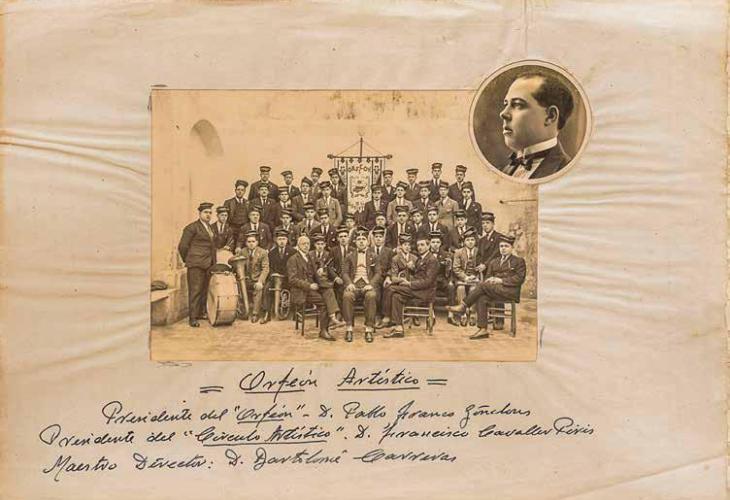 ORFEON
= Orfeón Artístico =
Presidente del "Orfeón" - D. Pablo Franco
Presidente del "Círculo Artístico". D. Francisco Cavaller Piris
Maestro Director: D. Bartolomé Carreras